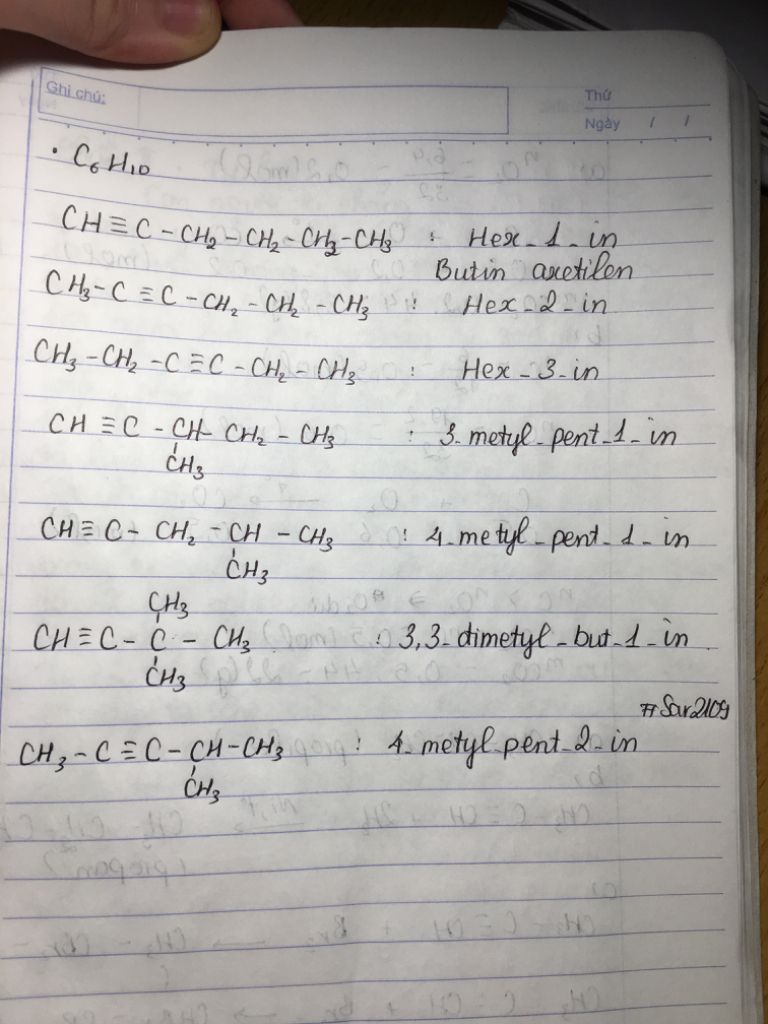 Ghi chú:
Thứ
Ngày / /
• C6H10
CH ≡ C - CH2 - CH2 - CH2 - CH3 : Hex - 1 - in
Butin axetilen
CH3 - C ≡ C - CH2 - CH2 - CH3 : Hex - 2 - in
CH3 - CH2 - C ≡ C - CH2 - CH3 : Hex - 3 - in
CH ≡ C - CH - CH2 - CH3 : 3 - metyl - pent - 1 - in
CH3
CH ≡ C - CH2 - CH - CH3 : 4 - metyl - pent - 1 - in
CH3
CH3
CH ≡ C - C - CH3 : 3,3 - dimetyl - but - 1 - in
CH3
#Sar2109
CH3 - C ≡ C - CH - CH3 : 4 - metyl - pent - 2 - in
CH3